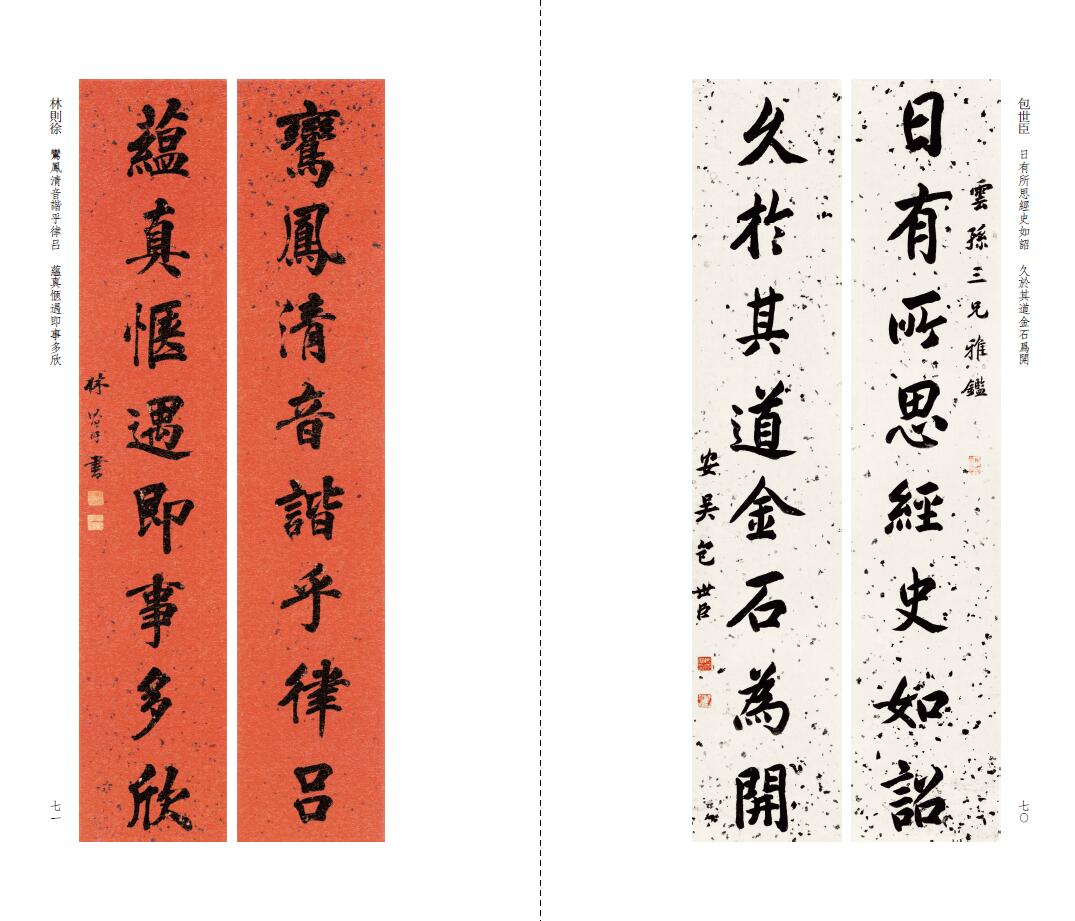 包世臣　日有所思經史如詔　久於其道金石爲開
七〇
雲孫三兄雅鑑
日有所思經史如詔
久於其道金石為開
安吴包世臣
鸞鳳清音諧乎律呂
蘊真愜遇即事多欣
林則徐書
林則徐　鸞鳳清音諧乎律呂　蘊真愜遇即事多欣
七一